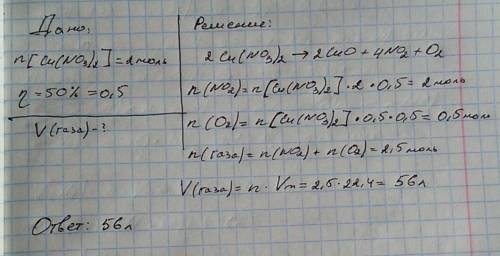 Дано:
n[Cu(NO₃)₂]=2моль
η=50%=0,5
V(газа)-?
Решение:
2Cu(NO₃)₂→2CuO+4NO₂+O₂
n(NO₂)=n[Cu(NO₃)₂]·2·0,5=2моль
n(O₂)=n[Cu(NO₃)₂]·0,5·0,5=0,5моль
n(газа)=n(NO₂)+n(O₂)=2,5моль
V(газа)=n·Vm=2,5·22,4=56л
Ответ: 56л